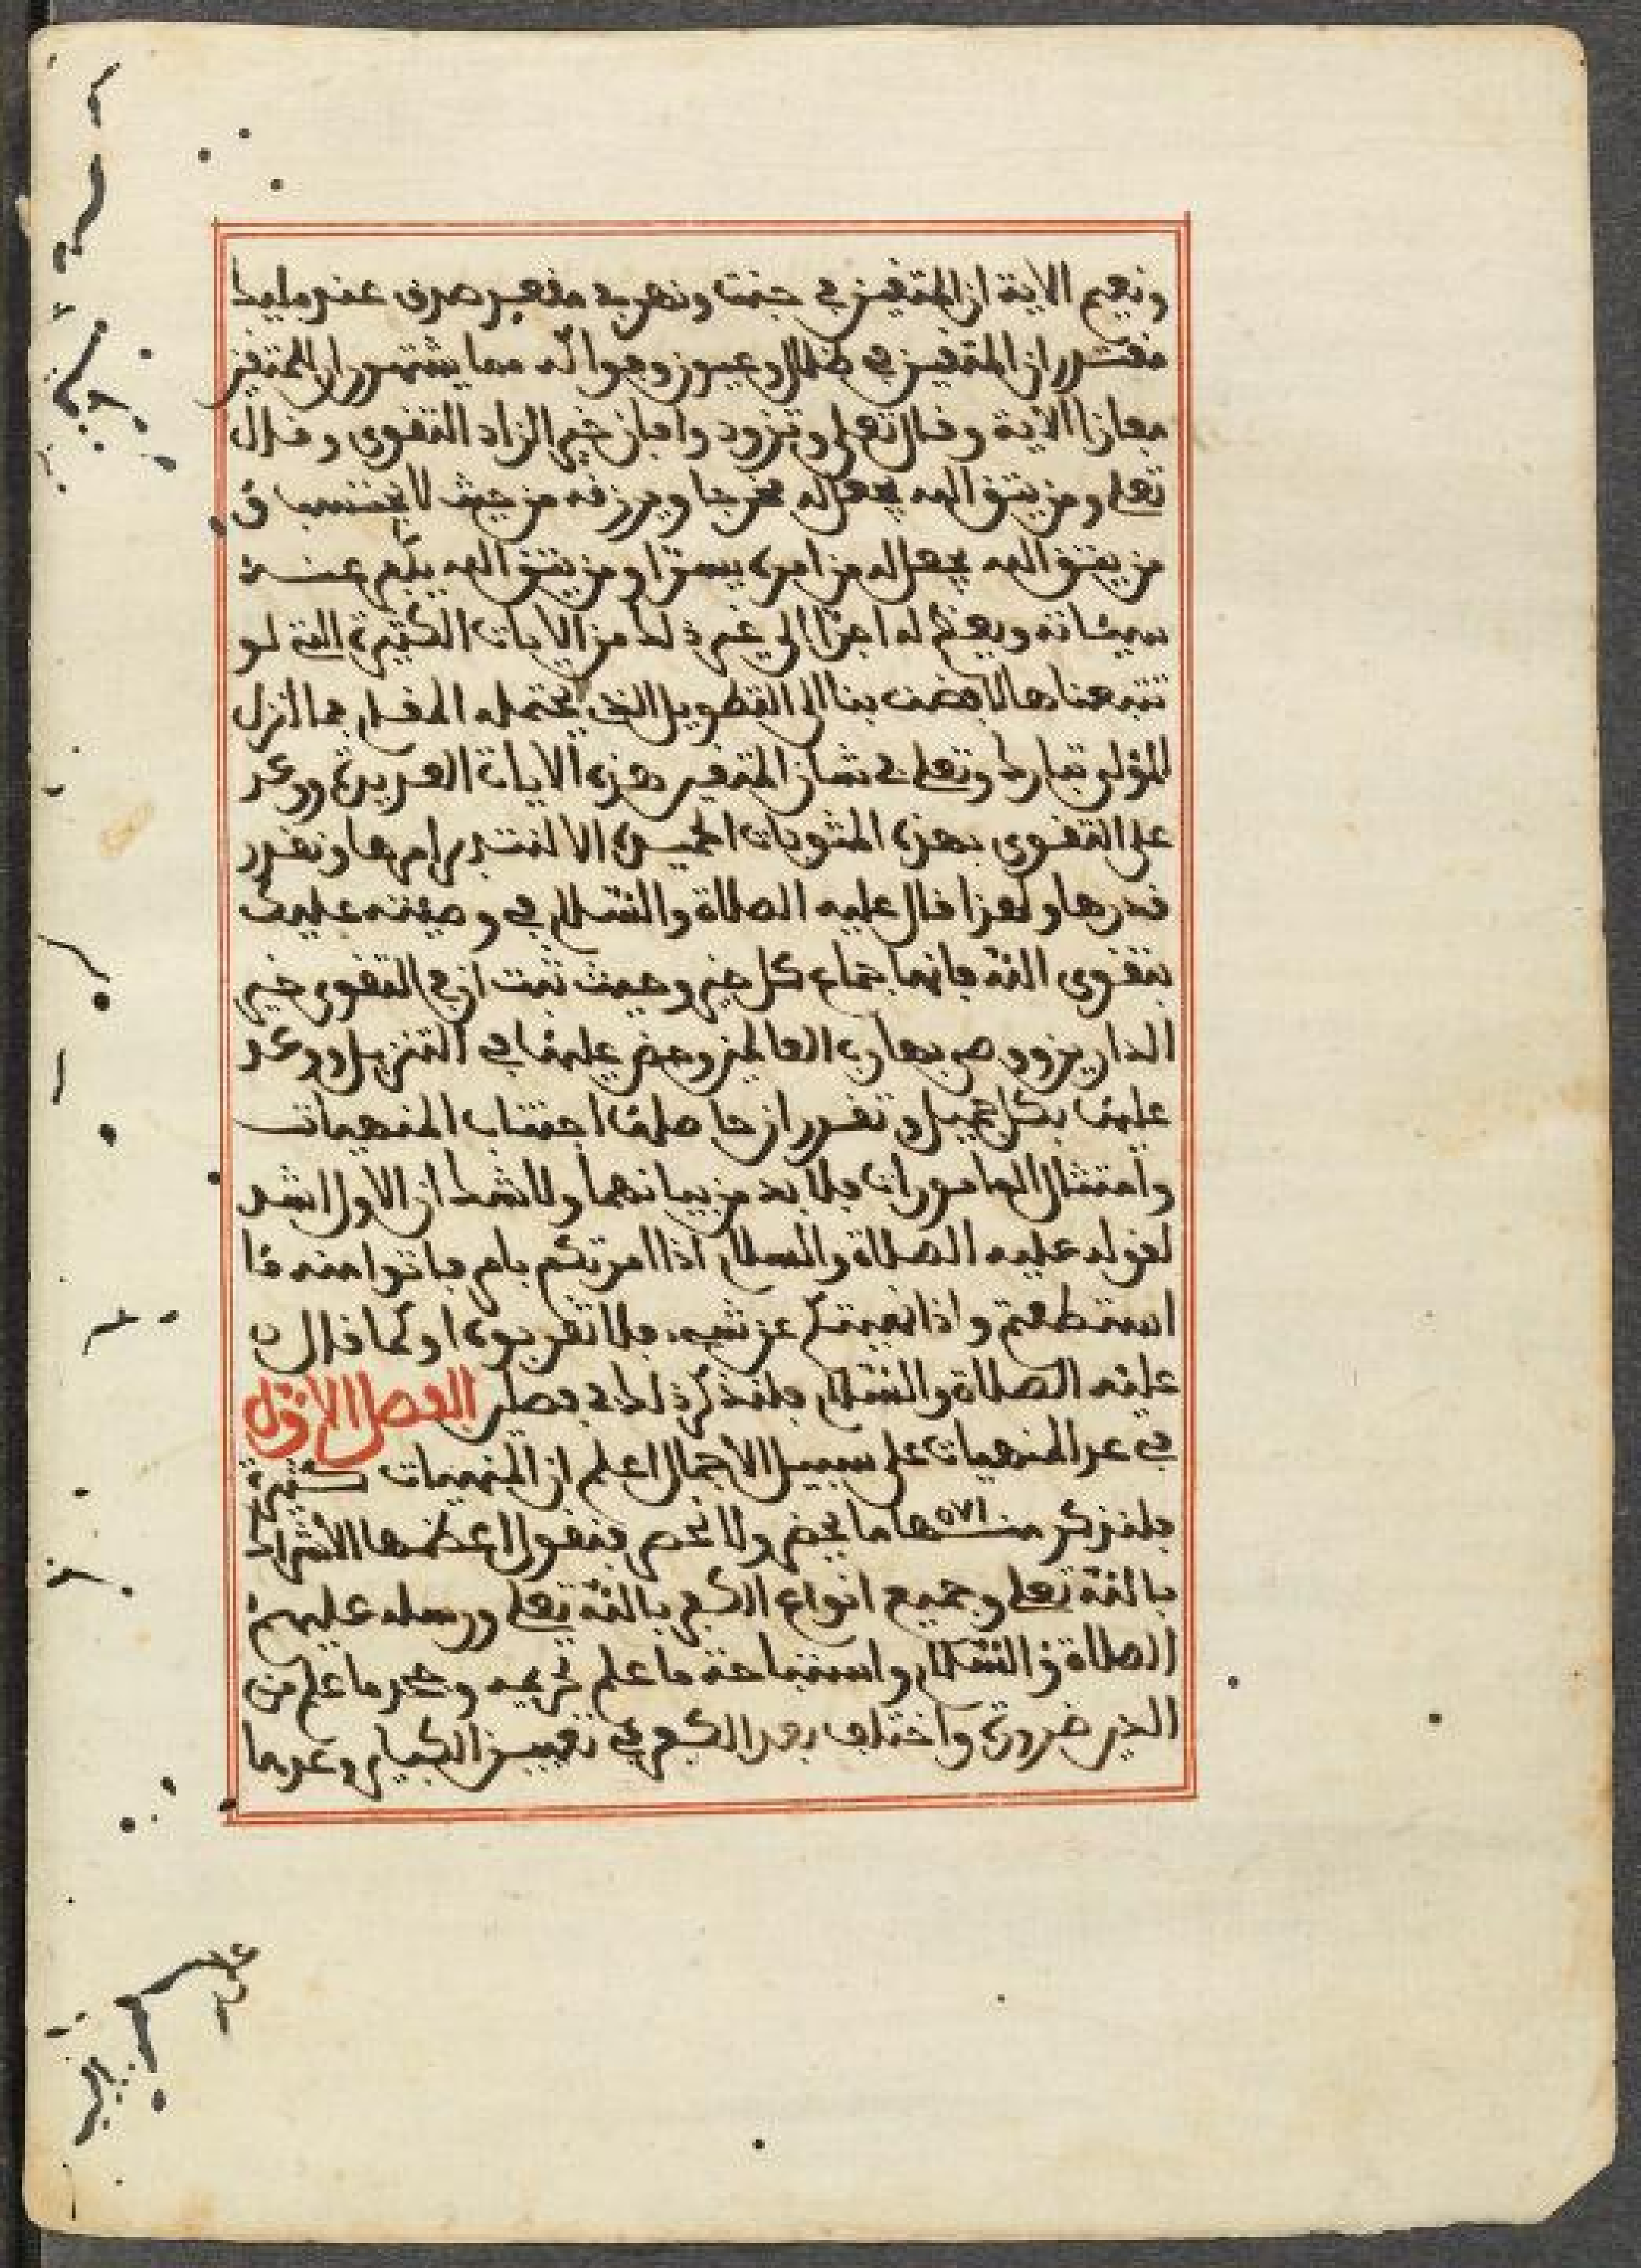 ونعيم الاية ان المتقين في جنت ونهر في مقعد صدق عند مليك
مقتدر ان المتقين في ظلال وعيون وفواكه مما يشتهون ان للمتقين
مفازا الاية وقال تعلى وتزودوا فإن خير الزاد التقوى وقال
تعلى ومن يتق الله يجعل له مخرجا ويرزقه من حيث لا يحتسب و
من يتق الله يجعل له من امره يسرا ومن يتق الله يكفر عنه
سيئاته ويعظم له اجرا الى غير ذلك من الايات الكثيرة التي لو
تتبعناها لافضت بنا الى التطويل الذي يحتمله المقام فما انزل
المولى تبارك وتعلى في شان المتقين هذه الايات العديدة ووعد
على التقوى بهذه المثوبات الا لتتدبر امرها ونقدر
قدرها ولهذا قال عليه الصلاة والسلام في وصيته عليك
بتقوى الله فانها جماع كل خير وحيث ثبت ان في التقوى خير
الدارين ووصى بها رب العالمين وحض عليها في التنزيل ووعد
عليها بكل جميل وتقرر ان حاصلها اجتناب المنهيات
وامتثال المامورات فلا بد من بيانهما ولا شك ان الاول اشد
لقوله عليه الصلاة والسلام اذا امرتكم بامر فاتوا منه ما
استطعتم واذا نهيتكم عن شيء فلا تقربوه او كما قال
عليه الصلاة والسلام فلنذكر ذلك في فصلين الفصل الاول
في عد المنهيات على سبيل الاجمال اعلم ان المنهيات كثيرة
فلنذكر منها ما يحضر ولا نحصر فنقول اعظمها الاشراك
بالله تعلى وجميع انواع الكفر بالله تعلى ورسله عليهم
الصلاة والسلام واستباحة ما علم تحريمه وجحد ما علم من
الدين ضرورة واختلف بعد الكفر في تعيين الكبائر وعدها